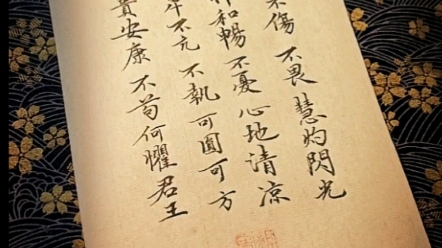 不傷 不畏 慧灼閃光
和暢 不憂 心地清凉
不亢 不執 可圓可方
貴安康 不苟何懼君王